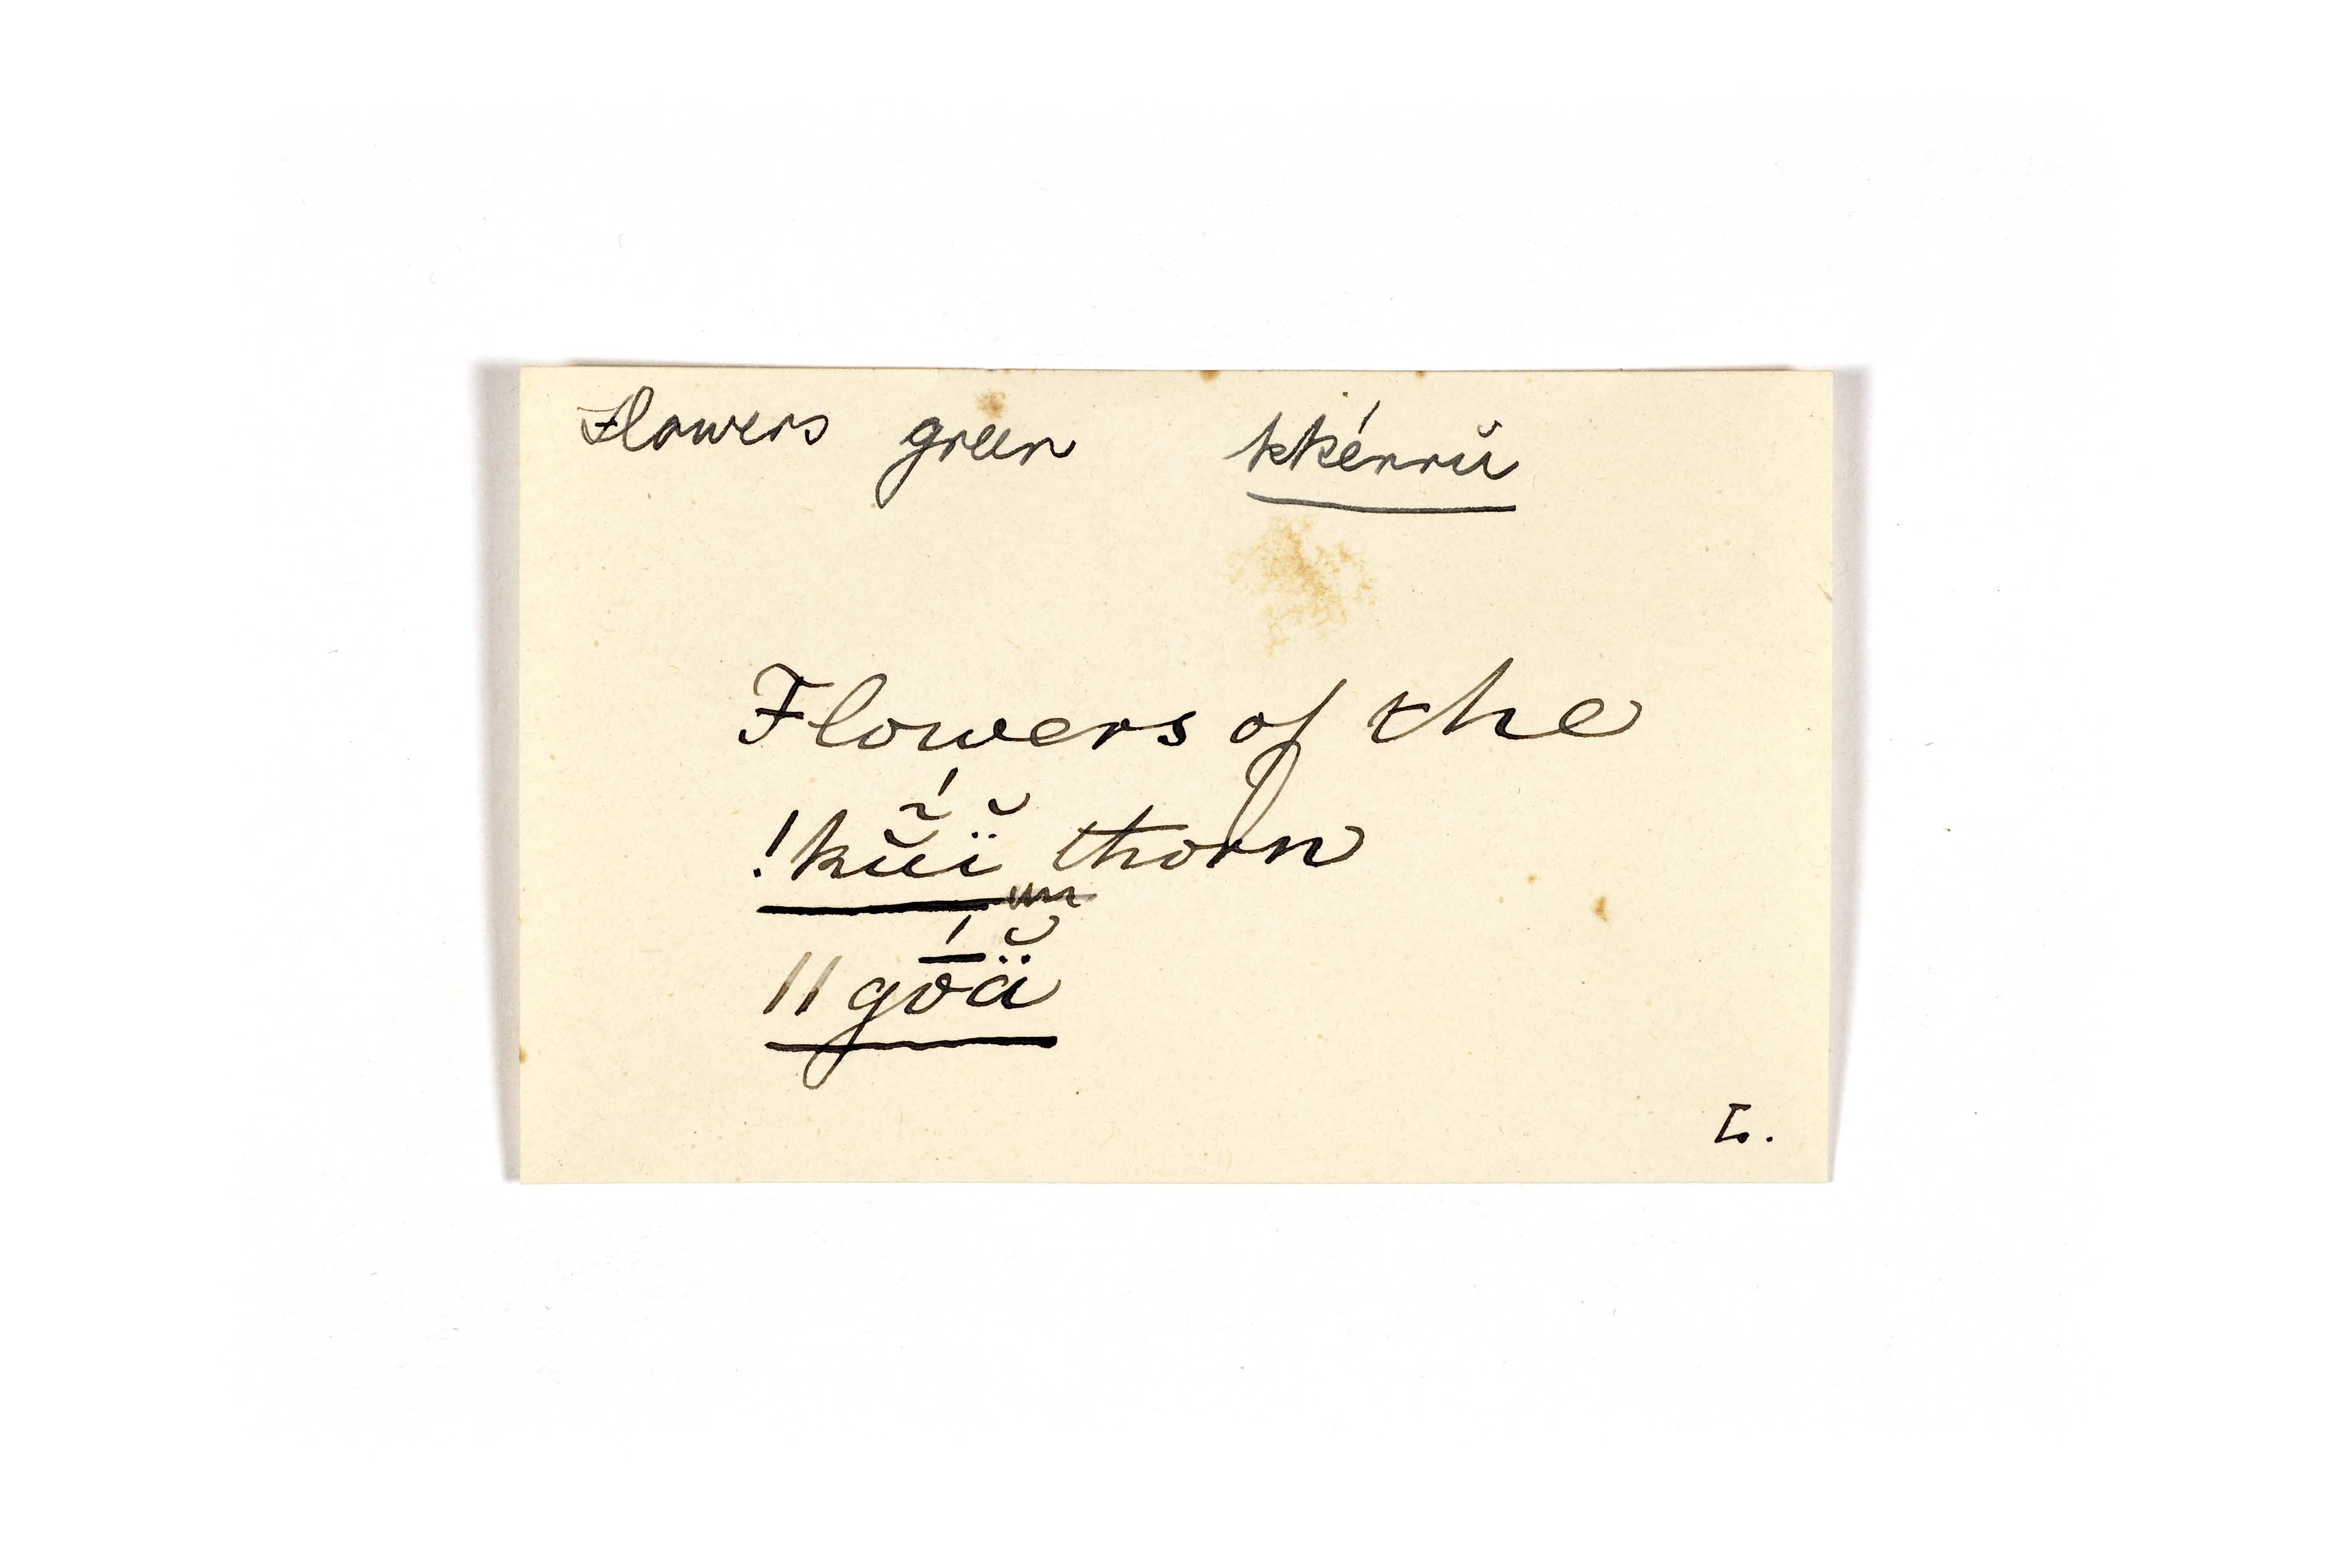 Flowers green kkérrŭ
Flowers of the
!kṹï̆ thorn
||gṓä̆
L.